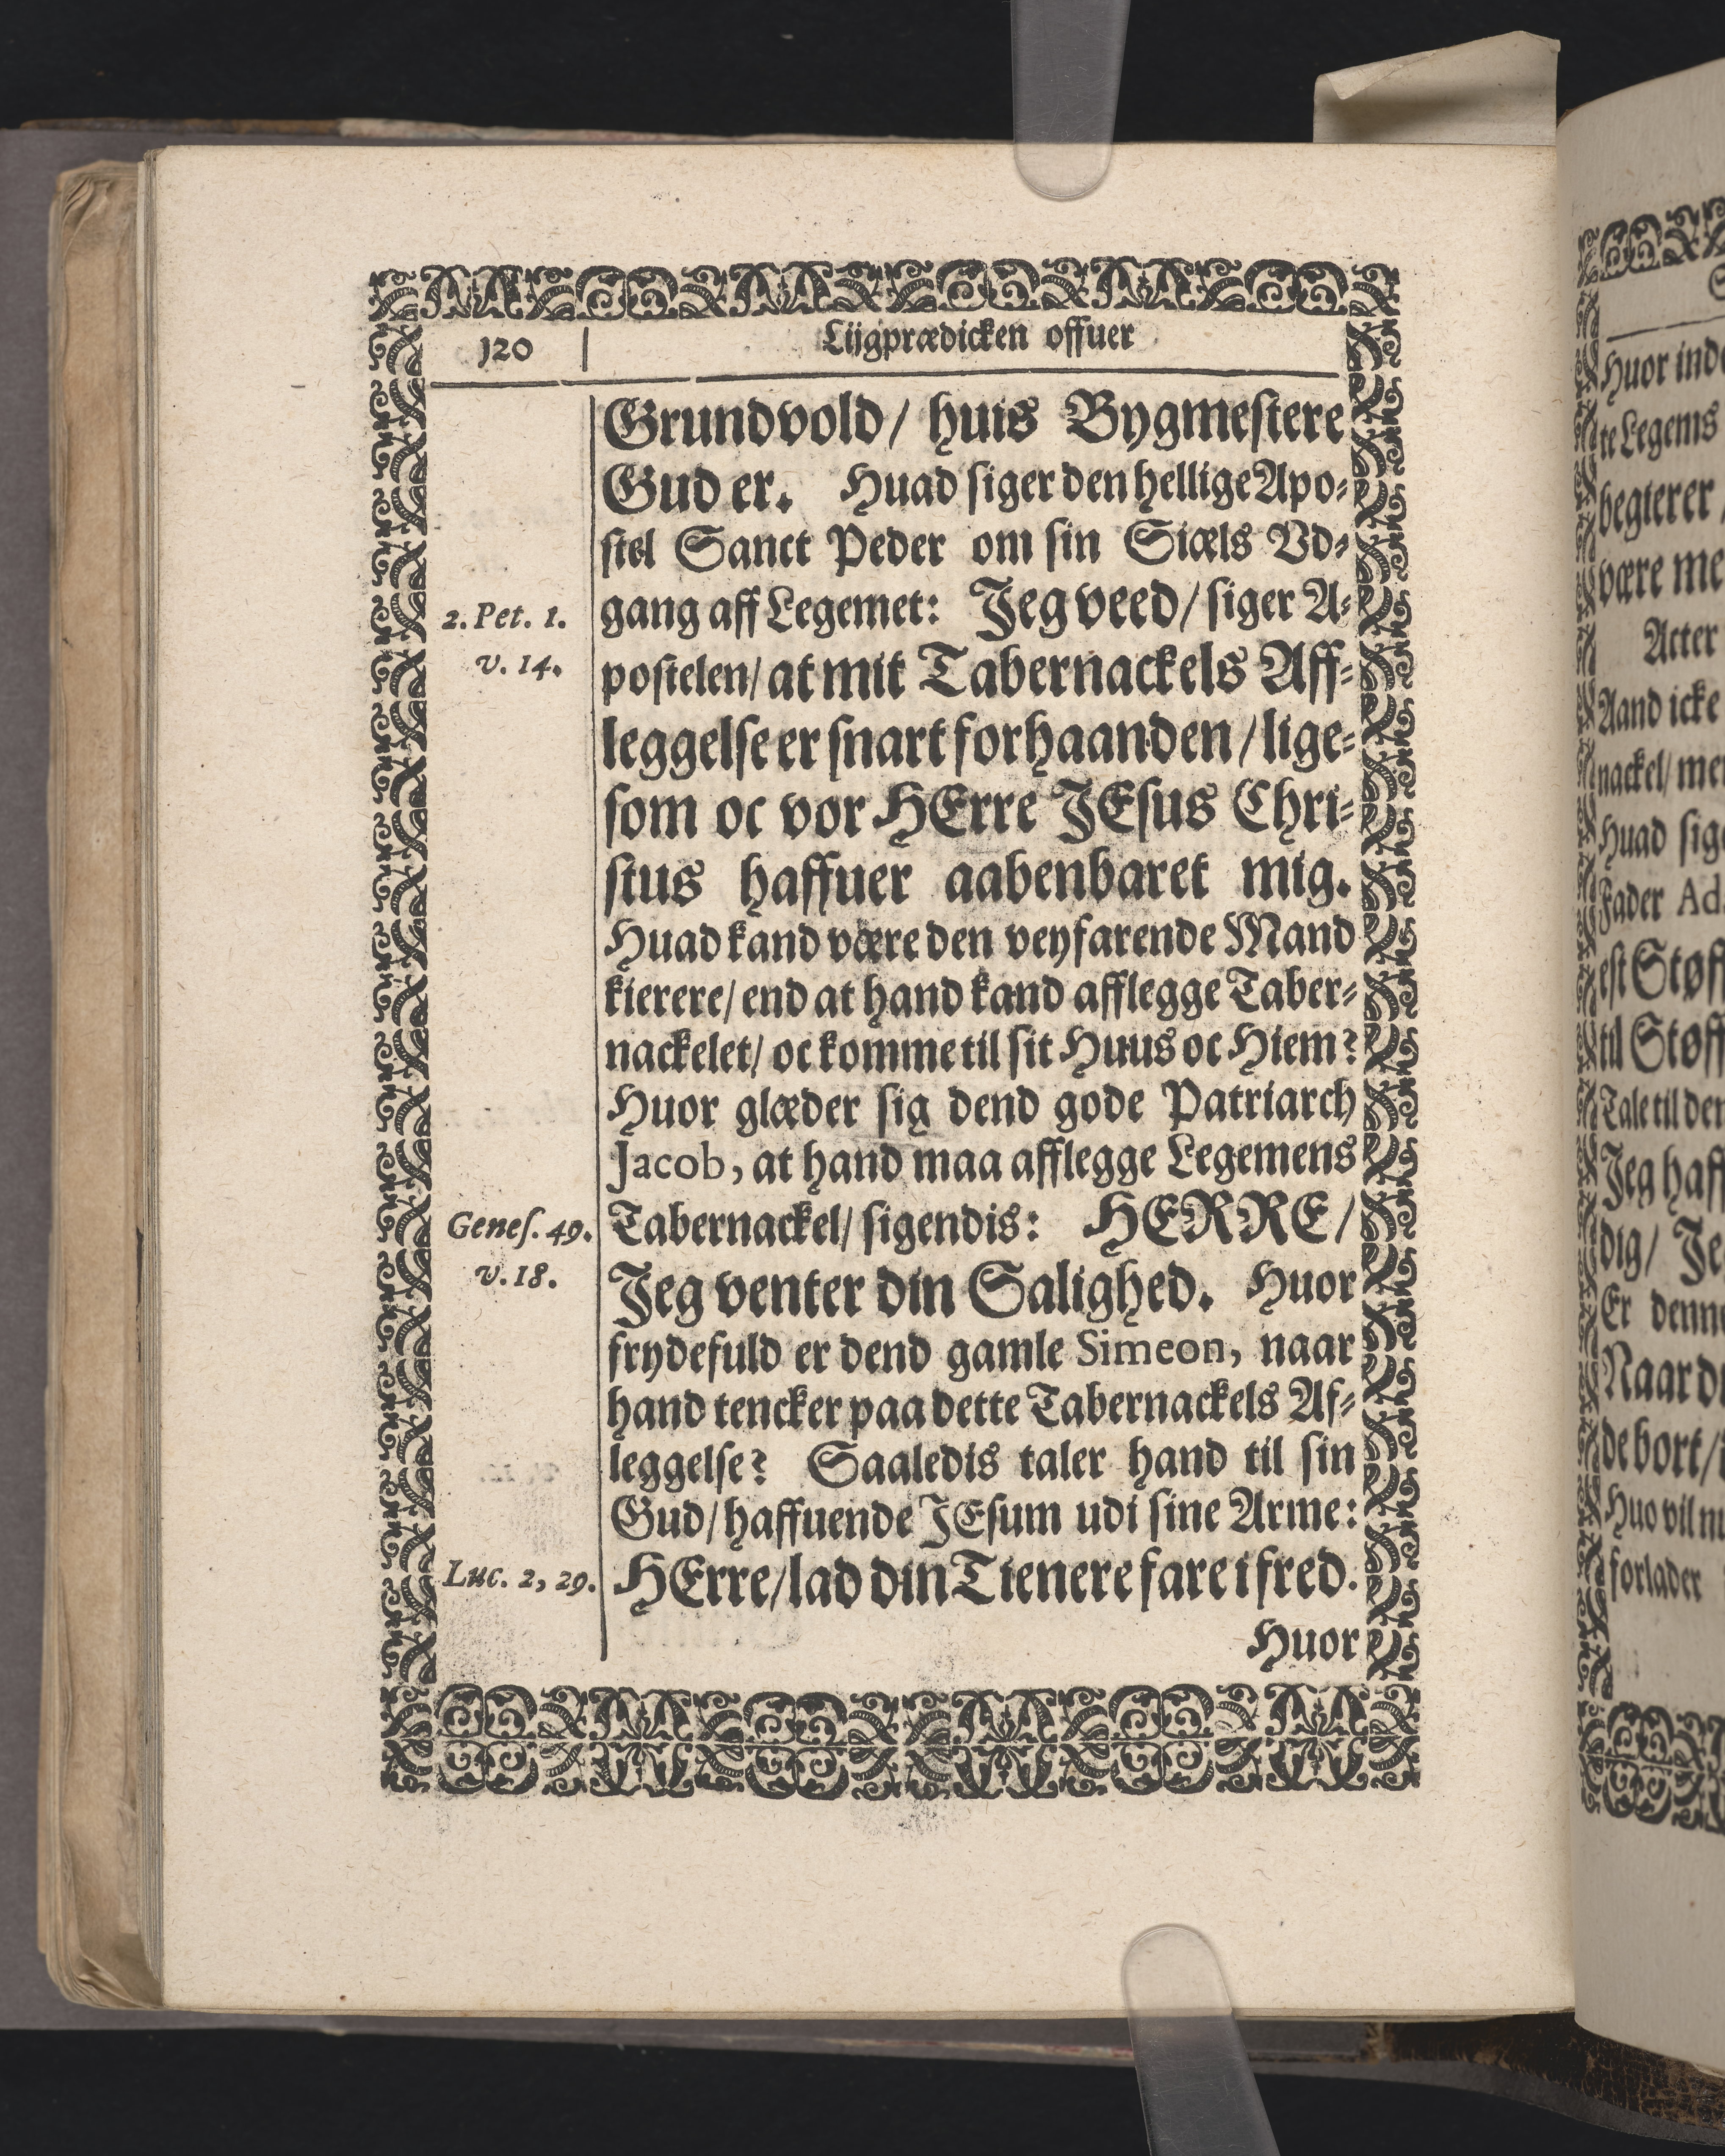 120 Lijgprædicken offuer
Grundvold/ huis Bygmestere
Gud er. Huad siger den hellige Apo-
stel Sanct Peder om sin Siæls Vd-
2. Pet. 1. gang aff Legemet: Jeg veed/ siger A-
v. 14. postelen/ at mit Tabernackels Aff-
leggelse er snart forhaanden/ lige-
som oc vor HErre JEsus Chri-
stus haffuer aabenbaret mig.
Huad kand være den veyfarende Mand
kierere/ end at hand kand afflegge Taber-
nackelet/ oc komme til sit Huus oc Hiem?
Huor glæder sig dend gode Patriarch
Jacob, at hand maa afflegge Legemens
Genes. 49. Tabernackel/ sigendis: HERRE/
v. 18. Jeg venter din Salighed. Huor
frydefuld er dend gamle Simeon, naar
hand tencker paa dette Tabernackels Af-
leggelse? Saaledis taler hand til sin
Gud/ haffuende JEsum udi sine Arme:
Luc. 2, 29. HErre/ lad din Tienere fare i fred.
Huor
Huor
te Legems
begierer
være
Atter
Aand icke
nackel/
Huad
Fader
til
Tale til
Jeg
dig/
Er
Naar
de bort/
Huo vil
forlader